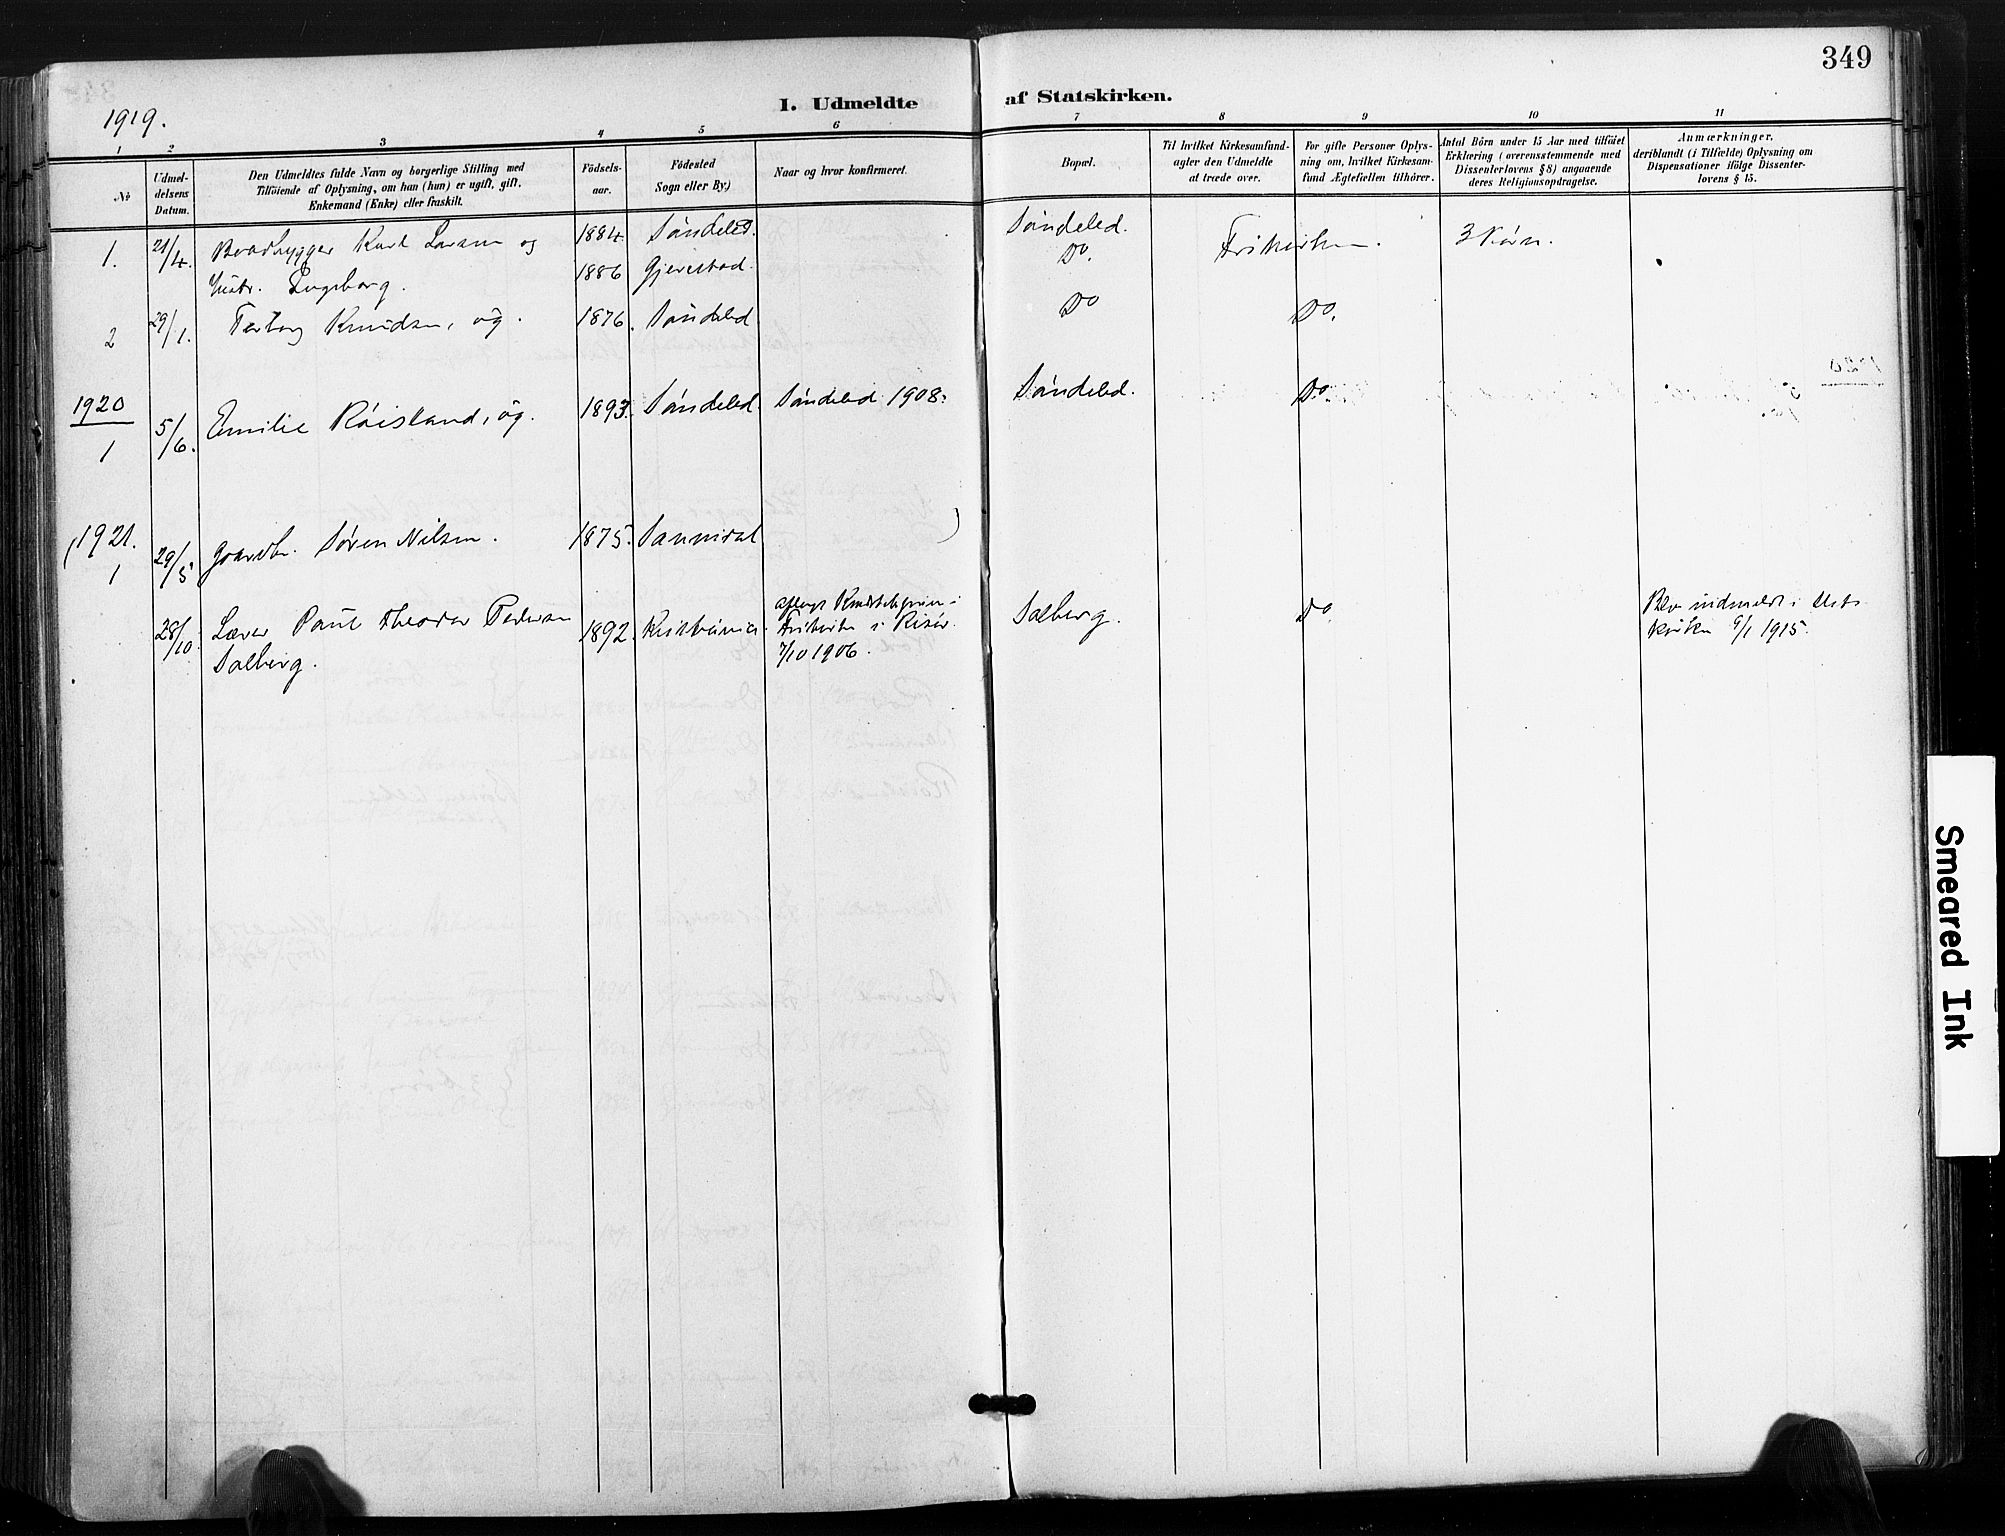 349
1919.
I. Udmeldte af Statskirken.
1 2 3 4 5 6 7 8 9 10 11
№
Udmel-
delsens
Datum.
Den Udmeldtes fulde Navn og borgerlige Stilling med
Tilföiende af Oplysning, om han (hun) er ugift, gift,
Enkemand (Enke) eller fraskilt.
Födsels-
aar.
Födested
Sogn eller By.)
Naar og hvor konfirmeret.
Bopæl.
Til hvilket Kirkesamfund-
agter den Udmeldte
at træde over.
For gifte Personer Oplys-
ning om, hvilket Kirkesam-
fund Ægtefællen tilhörer.
Antal Börn under 15 Aar med tilföiet
Erklæring (overensstemmende med
Dissenterlovens § 8) angaaende
deres Religionsopdragelse.
Anmærkninger,
deriblandt (i Tilfælde) Oplysning om
Dispensationer ifölge Dissenter-
lovens § 15.
1. 21/4. Baadbygger Karl Larsen og 1884. Søndeled. Søndeled. Frikirken. 3 børn.
Hustr. Ingeborg. 1886 Gjerestad. Do.
2 29/1. Knudsen, ug. 1876. Søndeled Do Do.
1920
1 5/6. Emilie Røisland, ug. 1893. Søndeled. Søndeled 1908. Søndeled. Do.
(1921.
1 29/5 Gaardbr. Søren Nilsen. 1875. Sannidal )
28/10 Lærer Paul Theodor Pedersen 1892. Kristiania. Solberg. Do.
Solberg.
aflagt
Frikirke i Risør.
7/10 1906.
Blev indmeldt i Stats
kirken 9/1 1915.
Smeared Ink